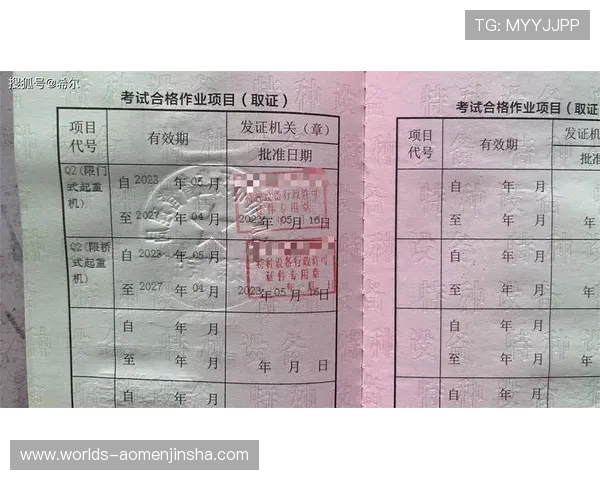 TG: MYYJJPP
搜狐号@希尔
考试合格作业项目（取证）
项目代号 有效期 发证机关（章）
批准日期
Q2(限门式起重机) 自 2023 年 05 月
至 2027 年 04 月 2023 年 05 月 16 日
特种设备行政许可
证件专用章
Q2(限桥式起重机) 自 2023 年 05 月
至 2027 年 04 月 2023 年 05 月 16 日
特种设备行政许可
证件专用章
自 年 月
至 年 月 年 月 日
自 年 月
至 年 月 年 月 日
考试合格作业项目（取证
项目代号 有效期 发证机
批准
自 年 月
至 年 月 年
自 年 月
至 年 月 年
自 年 月
至 年 月 年
自 年 月
至 年 月 年
www.worlds-aomenjinsha.com